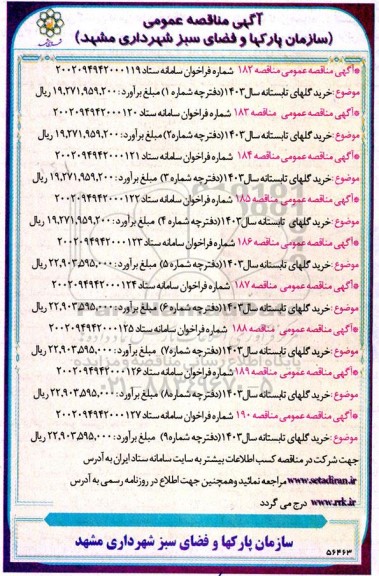 آگهی مناقصه عمومی
(سازمان پارکها و فضای سبز شهرداری مشهد)
*آگهی مناقصه عمومی مناقصه ۱۸۲ شماره فراخوان سامانه ستاد ۲۰۰۲۰۹۴۹۴۲۰۰۰۱۱۹
موضوع: خرید گلهای تابستانه سال ۱۴۰۳ (دفترچه شماره ۱) مبلغ برآورد: ۱۹،۲۷۱،۹۵۹،۲۰۰ ریال
*آگهی مناقصه عمومی مناقصه ۱۸۳ شماره فراخوان سامانه ستاد ۲۰۰۲۰۹۴۹۴۲۰۰۰۱۲۰
موضوع: خرید گلهای تابستانه سال ۱۴۰۳ (دفترچه شماره ۲) مبلغ برآورد: ۱۹،۲۷۱،۹۵۹،۲۰۰ ریال
*آگهی مناقصه عمومی مناقصه ۱۸۴ شماره فراخوان سامانه ستاد ۲۰۰۲۰۹۴۹۴۲۰۰۰۱۲۱
موضوع: خرید گلهای تابستانه سال ۱۴۰۳ (دفترچه شماره ۳) مبلغ برآورد: ۱۹،۲۷۱،۹۵۹،۲۰۰ ریال
*آگهی مناقصه عمومی مناقصه ۱۸۵ شماره فراخوان سامانه ستاد ۲۰۰۲۰۹۴۹۴۲۰۰۰۱۲۲
موضوع: خرید گلهای تابستانه سال ۱۴۰۳ (دفترچه شماره ۴) مبلغ برآورد: ۱۹،۲۷۱،۹۵۹،۲۰۰ ریال
*آگهی مناقصه عمومی مناقصه ۱۸۶ شماره فراخوان سامانه ستاد ۲۰۰۲۰۹۴۹۴۲۰۰۰۱۲۳
موضوع: خرید گلهای تابستانه سال ۱۴۰۳ (دفترچه شماره ۵) مبلغ برآورد: ۲۲،۹۰۳،۵۹۵،۰۰۰ ریال
*آگهی مناقصه عمومی مناقصه ۱۸۷ شماره فراخوان سامانه ستاد ۲۰۰۲۰۹۴۹۴۲۰۰۰۱۲۴
موضوع: خرید گلهای تابستانه سال ۱۴۰۳ (دفترچه شماره ۶) مبلغ برآورد: ۲۲،۹۰۳،۵۹۵،۰۰۰ ریال
*آگهی مناقصه عمومی مناقصه ۱۸۸ شماره فراخوان سامانه ستاد ۲۰۰۲۰۹۴۹۴۲۰۰۰۱۲۵
موضوع: خرید گلهای تابستانه سال ۱۴۰۳ (دفترچه شماره ۷) مبلغ برآورد: ۲۲،۹۰۳،۵۹۵،۰۰۰ ریال
*آگهی مناقصه عمومی مناقصه ۱۸۹ شماره فراخوان سامانه ستاد ۲۰۰۲۰۹۴۹۴۲۰۰۰۱۲۶
موضوع: خرید گلهای تابستانه سال ۱۴۰۳ (دفترچه شماره ۸) مبلغ برآورد: ۲۲،۹۰۳،۵۹۵،۰۰۰ ریال
*آگهی مناقصه عمومی مناقصه ۱۹۰ شماره فراخوان سامانه ستاد ۲۰۰۲۰۹۴۹۴۲۰۰۰۱۲۷
موضوع: خرید گلهای تابستانه سال ۱۴۰۳ (دفترچه شماره ۹) مبلغ برآورد: ۲۲،۹۰۳،۵۹۵،۰۰۰ ریال
جهت شرکت در مناقصه کسب اطلاعات بیشتر به سایت سامانه ستاد ایران به آدرس
www.setadiran.ir مراجعه نمائید وهمچنین جهت اطلاع در روزنامه رسمی به آدرس
www.rrk.ir درج می گردد
سازمان پارکها و فضای سبز شهرداری مشهد
۵۶۴۶۳